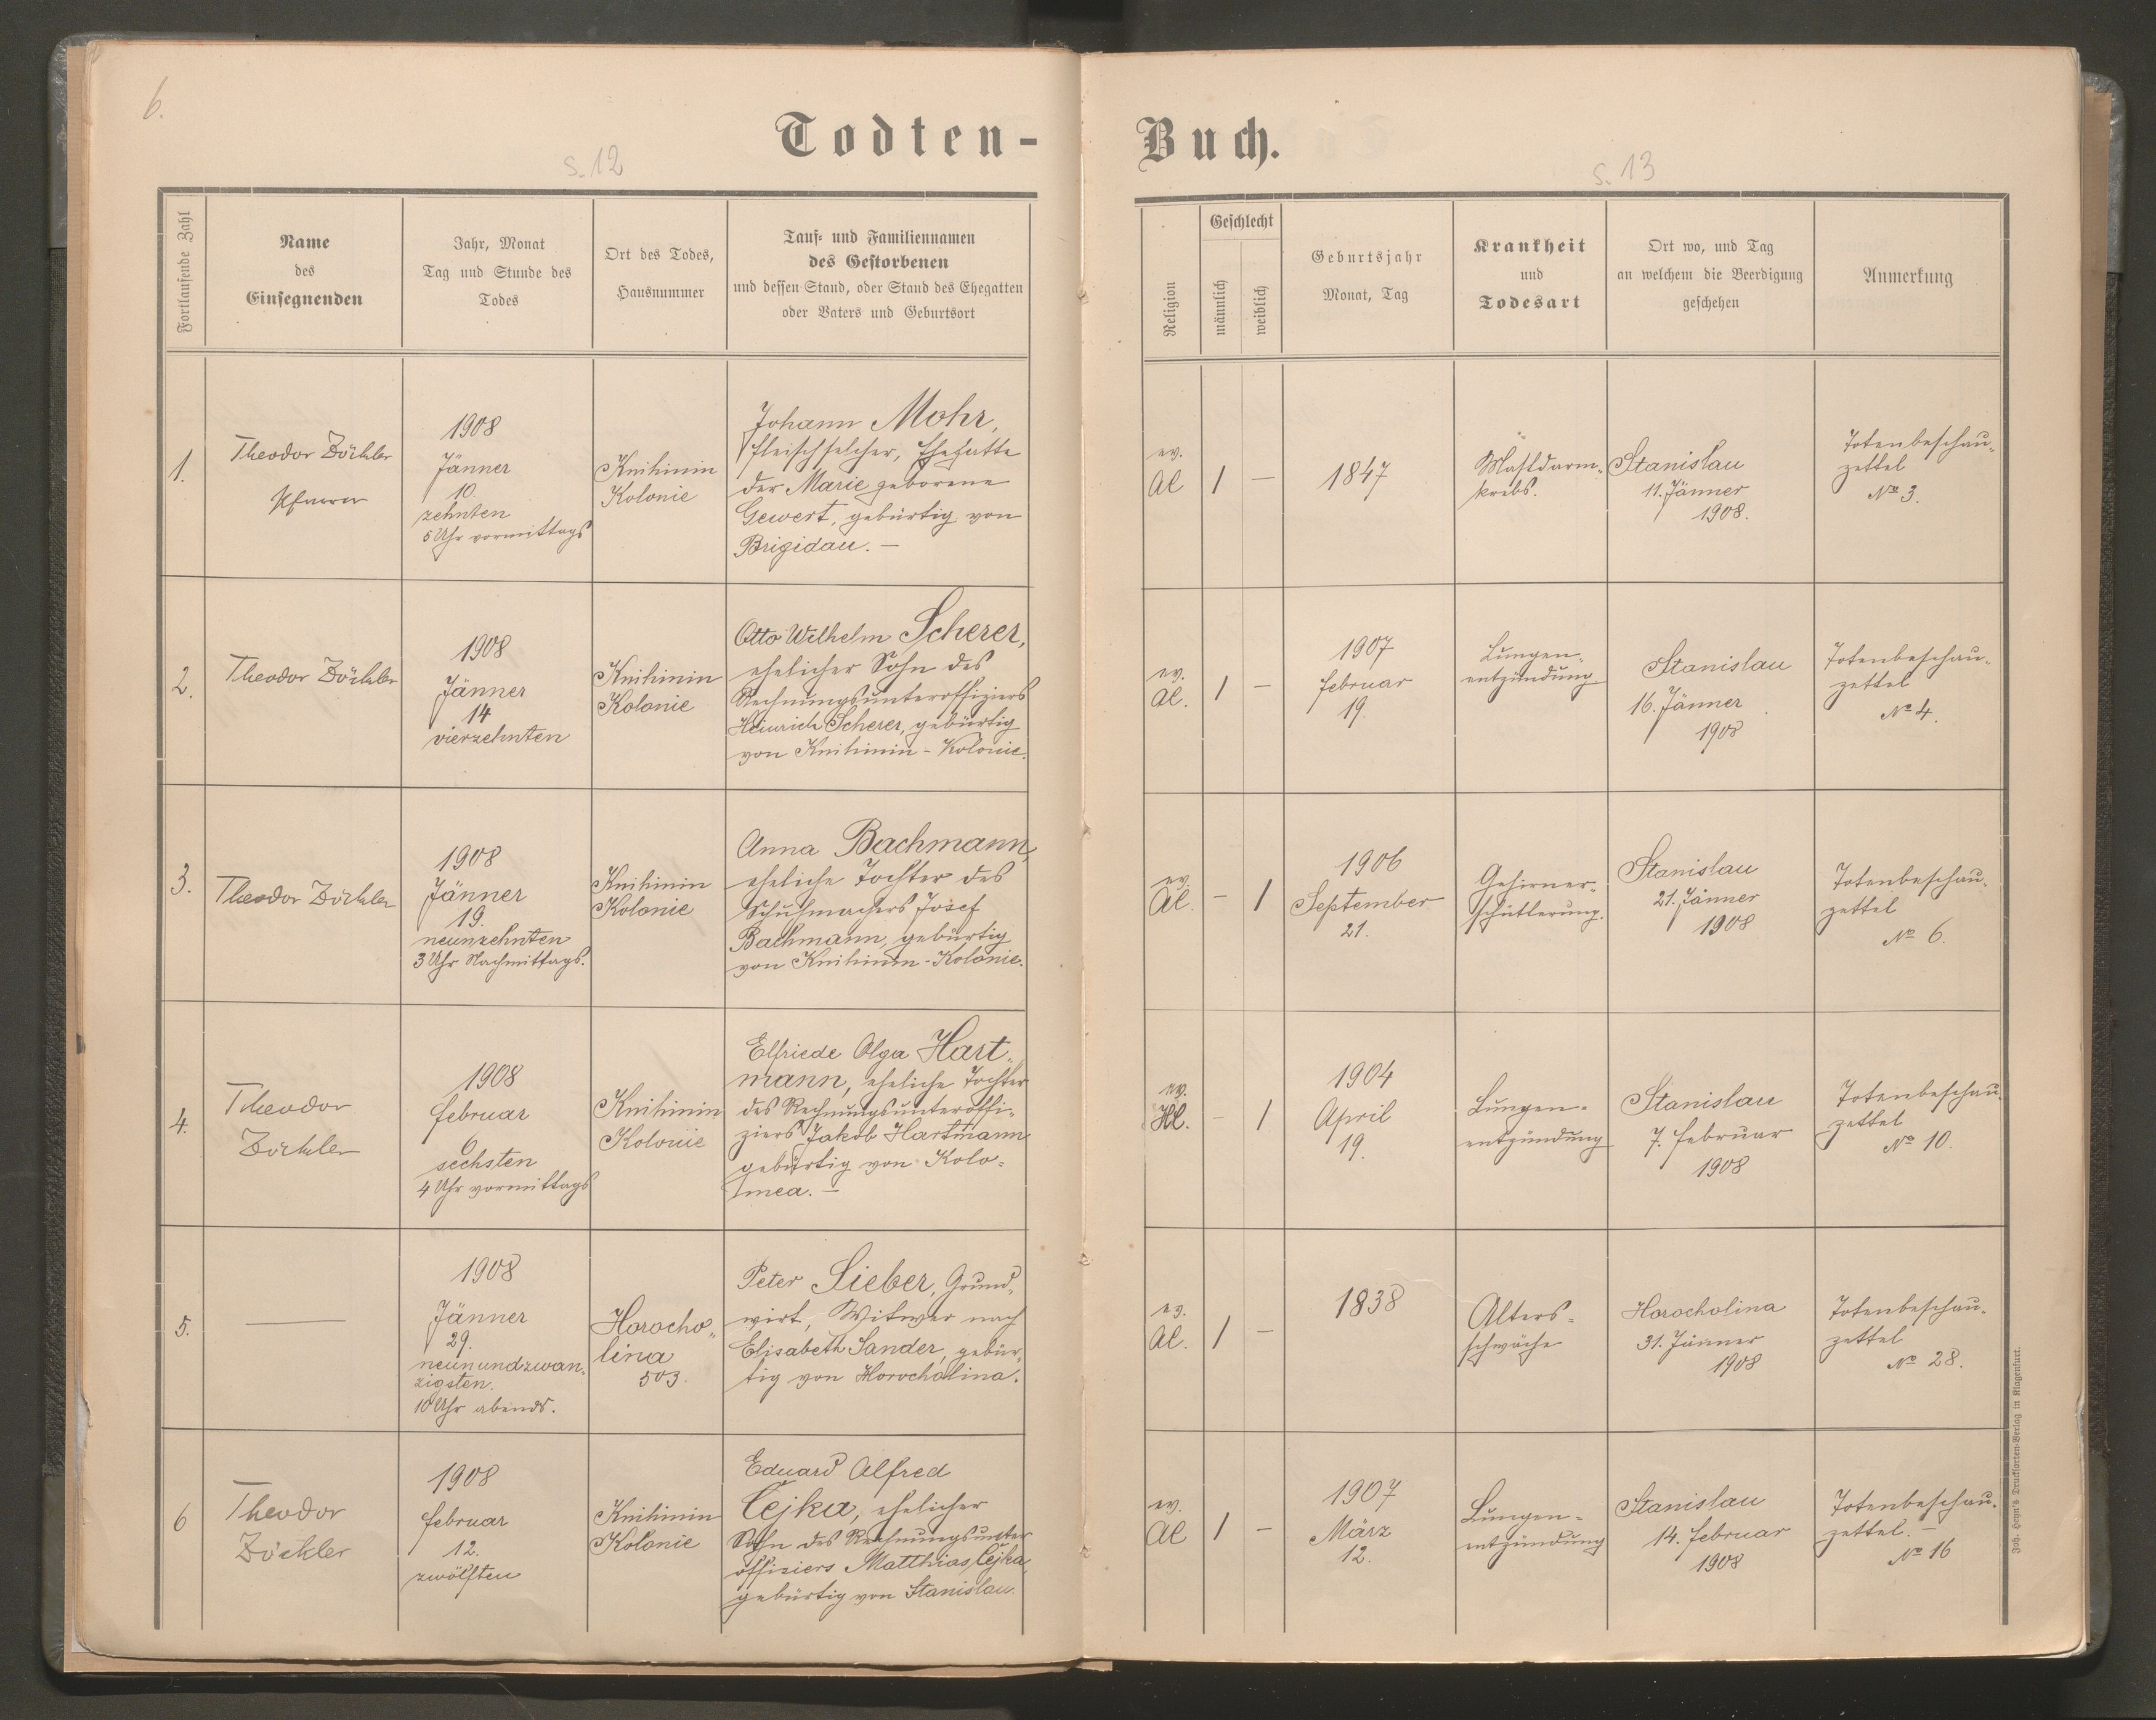 6.
Todten-
Buch.
S. 12
S. 13
Fortlaufende Zahl
Name
des
Einsegnenden
Jahr, Monat
Tag und Stunde des
Todes
Ort des Todes,
Hausnummer
Tauf- und Familiennamen
des Gestorbenen
und dessen Stand, oder Stand des Ehegatten
oder Vaters und Geburtsort
Religion
Geschlecht
männlich
weiblich
Geburtsjahr
Monat, Tag
Krankheit
und
Todesart
Ort wo, und Tag
an welchem die Beerdigung
geschehen
Anmerkung
1.
Theodor Zöckler
Pfarrer
1908
Jänner
10.
zehnten
5 Uhr vormittags
Knihinin
Kolonie
Johann Mohr,
Fleischselcher, Ehegatte
der Marie geborene
Gewert, gebürtig von
Brigidau. —
ev.
Al
1
—
1847
Mastdarm-
krebs.
Stanislau
11. Jänner
1908.
Totenbeschau-
zettel
No 3.
2.
Theodor Zöckler
1908
Jänner
14
vierzehnten
Knihinin
Kolonie
Otto Wilhelm Scherer,
ehelicher Sohn des
Rechnungsunteroffiziers
Heinrich Scherer, gebürtig
von Knihinin - Kolonie.
ev.
Al.
1
—
1907
Februar
19.
Lungen-
entzündung
Stanislau
16. Jänner
1908
Totenbeschau-
zettel
No 4.
3.
Theodor Zöckler
1908
Jänner
19.
neunzehnten
3 Uhr Nachmittags.
Knihinin
Kolonie
Anna Bachmann,
eheliche Tochter des
Schuhmachers Josef
Bachmann, gebürtig
von Knihinin - Kolonie.
ev.
Al.
—
1
1906
September
21.
Gehirner-
schütterung.
Stanislau
21. Jänner
1908
Totenbeschau-
zettel
No 6.
4.
Theodor
Zöckler
1908
Februar
6
sechsten
4 Uhr vormittags
Knihinin
Kolonie
Elfriede Olga Hart-
mann, eheliche Tochter
des Rechnungsunteroffi-
ziers Jakob Hartmann
gebürtig von Kolo-
mea. —
ev.
Hl.
—
1
1904
April
19.
Lungen-
entzündung
Stanislau
7. Februar
1908
Totenbeschau-
zettel
No 10.
5.
—
1908
Jänner
29.
neunundzwan-
zigsten.
10 Uhr abends.
Horocho-
lina
503.
Peter Sieber, Grund-
wirt, Witwer nach
Elisabeth Sander, gebür-
tig von Horocholina.
ev.
Al.
1
—
1838
Alters-
schwäche
Horocholina
31. Jänner
1908
Totenbeschau-
zettel
No 28.
6
Theodor
Zöckler
1908
Februar
12.
zwölften
Knihinin
Kolonie
Eduard Alfred
Čejka, ehelicher
Sohn des Rechnungsunter
offiziers Matthias Čejka,
gebürtig von Stanislau.
ev.
Al
1
—
1907
März
12.
Lungen-
entzündung
Stanislau
14. Februar
1908
Totenbeschau-
zettel. —
No 16
Joh. Heyn's Drucksorten-Verlag in Klagenfurt.